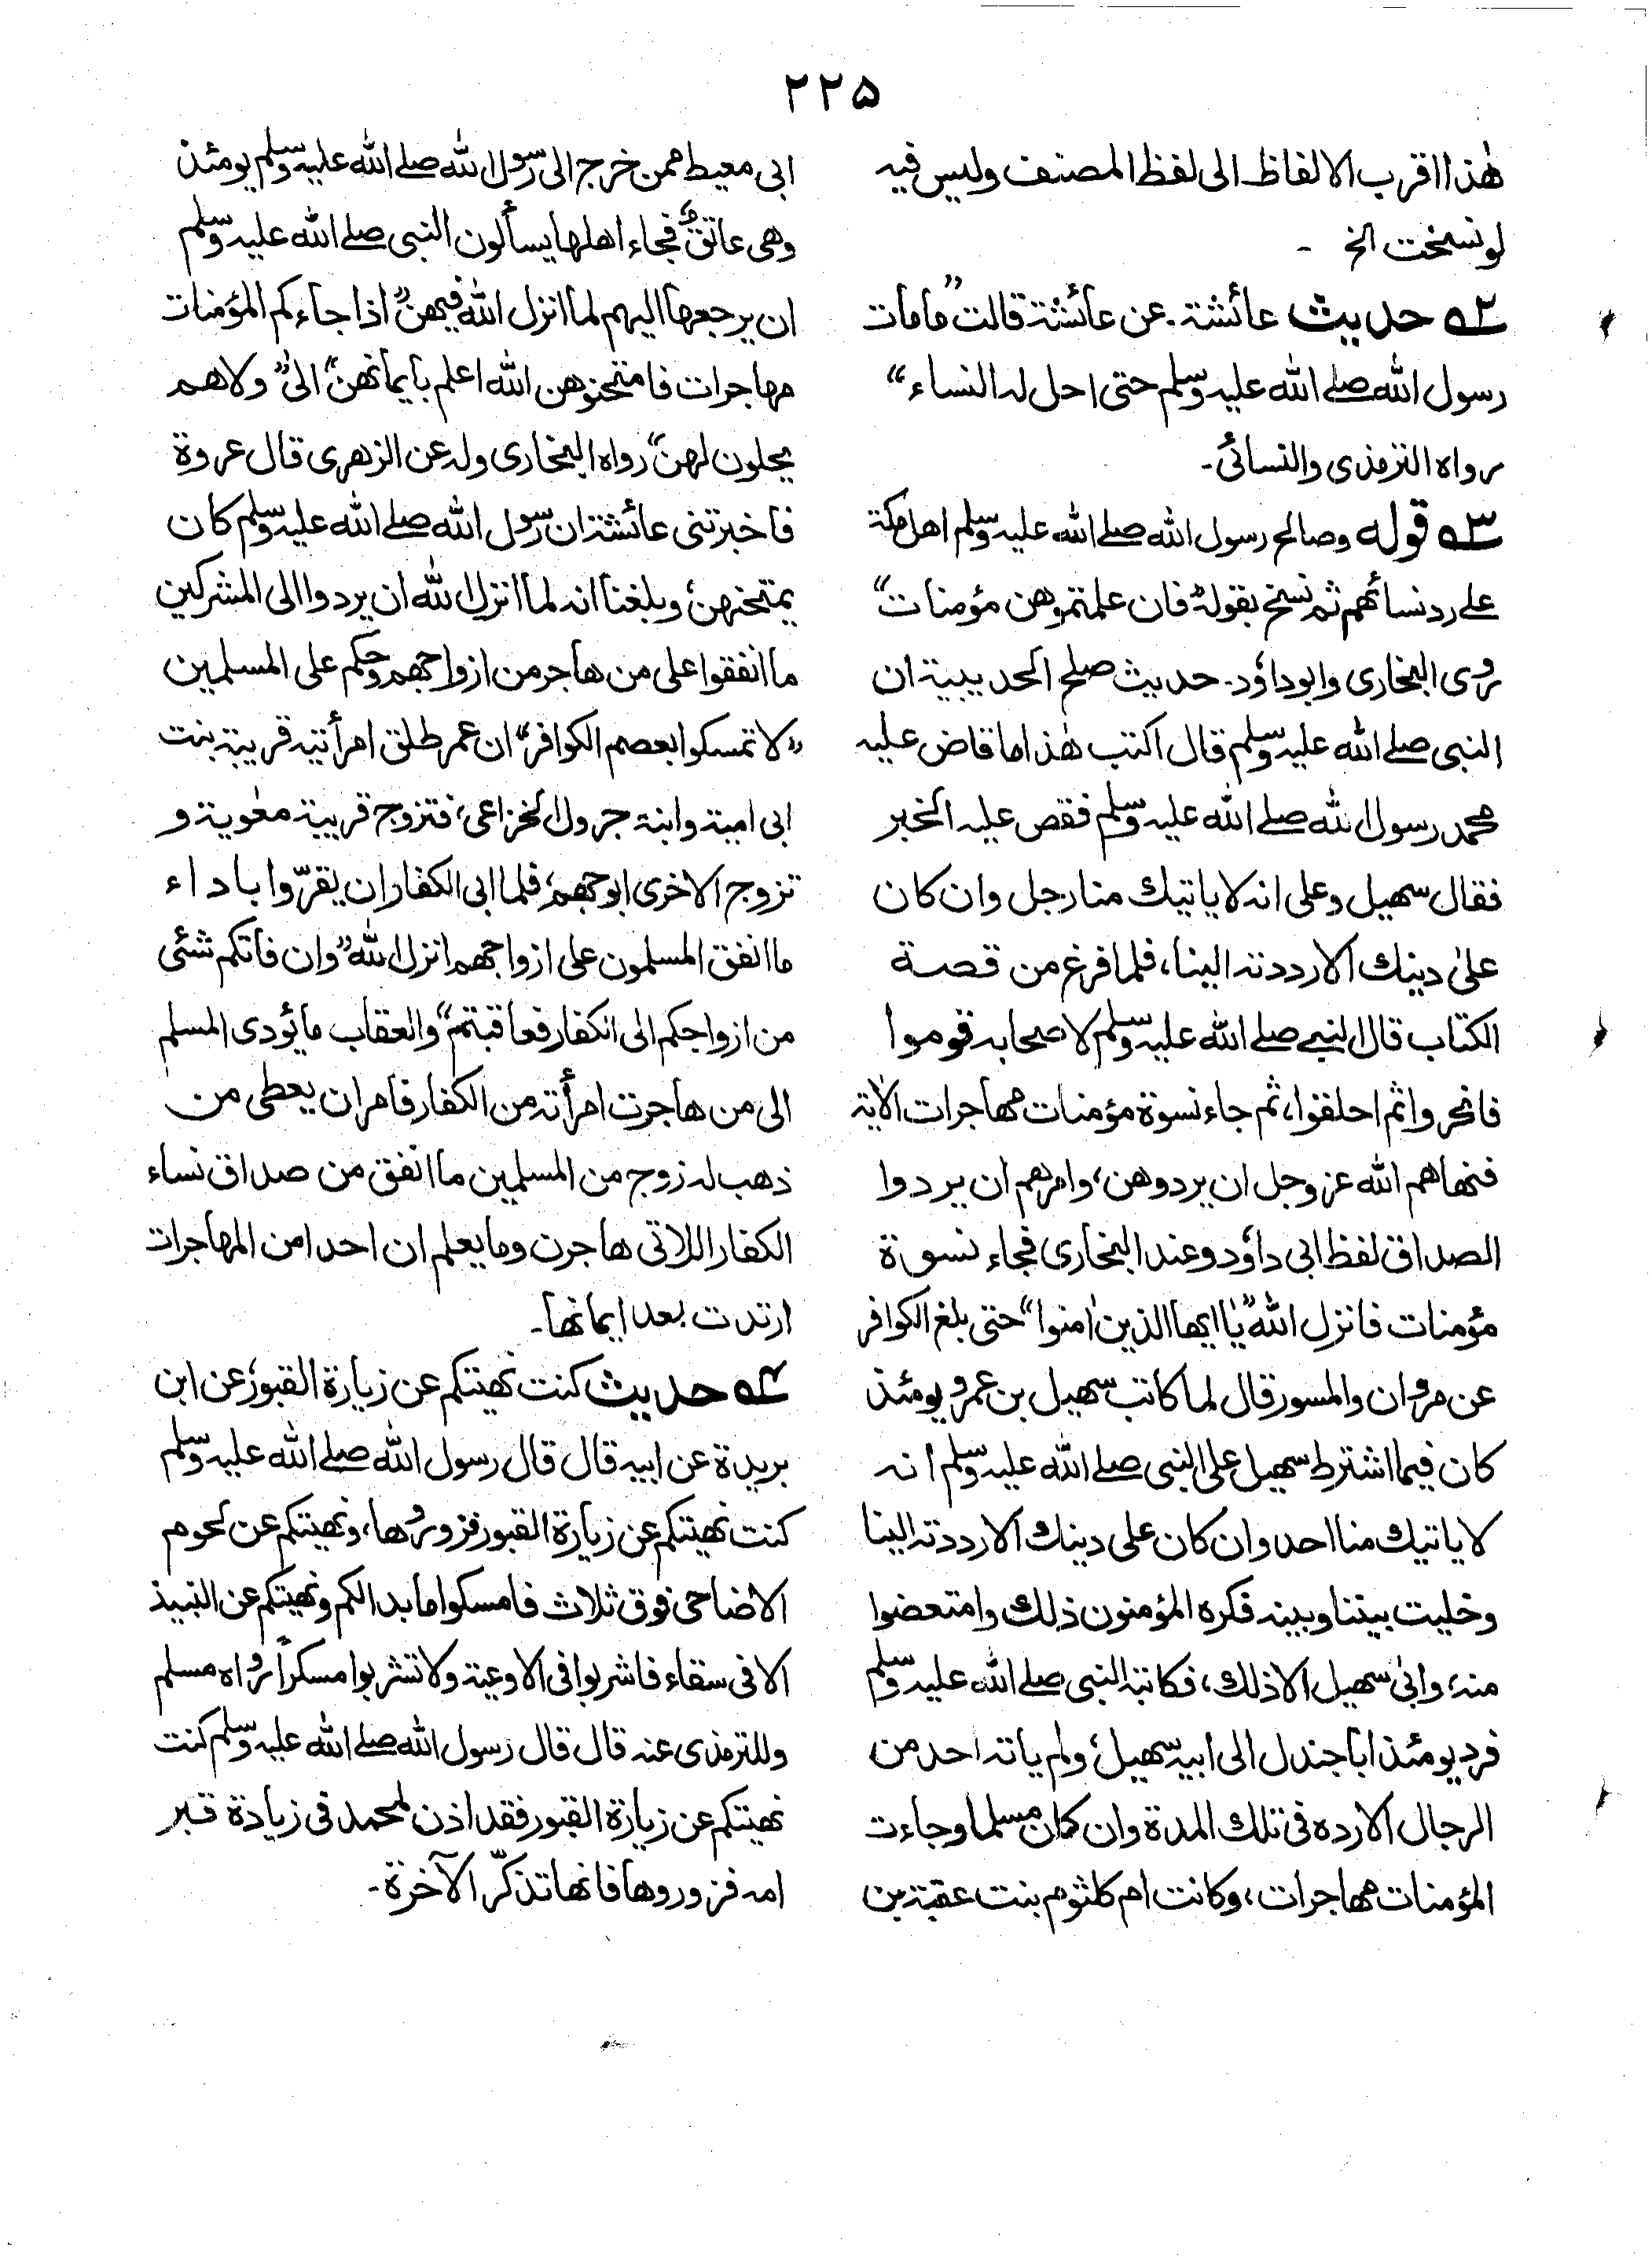 ۲۲۵
هٰذا اقرب الالفاظ الى لفظ المصنف وليس فيه
لو نسخت الخ -
۲ه حديث عائشة. عن عائشة قالت "ما مات
رسول الله صلے الله عليه وسلم حتى احل له النساء"
رواه الترمذى والنسائى-
۳ه قوله وصالح رسول الله صلے الله عليه وسلم اهل مكة
على رد نسائهم ثم نسخ بقوله "فان علمتموهن مؤمنات"
روى البخارى وابوداؤد. حديث صلح الحديبية ان
النبى صلے الله عليه وسلم قال اكتب هٰذا ما قاض عليه
محمد رسول الله صلے الله عليه وسلم فقص عليه الخبر
فقال سهيل وعلى انه لا ياتيك منا رجل وان كان
علىٰ دينك الا رددته الينا، فلما فرغ من قصة
الكتاب قال النبے صلے الله عليه وسلم لاصحابه قوموا
فانحروا ثم احلقوا، ثم جاء نسوة مؤمنات مهاجرات الاٰية
فنهاهم الله عز وجل ان يردوهن، وامرهم ان يردوا
الصداق لفظ ابى داؤد وعند البخارى فجاء نسوة
مؤمنات فانزل الله "يٰا ايها الذين اٰمنوا" حتى بلغ الكوافر
عن مروان والمسور قال لما كاتب سهيل بن عمرو يومئذ
كان فيما اشترط سهيل على النبى صلے الله عليه وسلم انه
لا ياتيك منا احد وان كان على دينك الا رددته الينا
وخليت بيننا وبينه فكره المؤمنون ذلك وامتعضوا
منه، وابىٰ سهيل الا ذلك، فكاتبه النبى صلے الله عليه وسلم
فرد يومئذ ابا جندل الى ابيه سهيل، ولم ياته احد من
الرجال الا رده فى تلك المدة وان كان مسلما وجاءت
المؤمنات مهاجرات، وكانت ام كلثوم بنت عقبة بن
ابى معيط ممن خرج الى رسول الله صلے الله عليه وسلم يومئذ
وهى عاتق، فجاء اهلها يسألون النبى صلے الله عليه وسلم
ان يرجعها اليهم لما انزل الله فيهن "اذا جاءكم المؤمنات
مهاجرات فامتحنوهن الله اعلم بايمانهن" الىٰ "ولاهم
يحلون لهن" رواه البخارى وله عن الزهرى قال عروة
فاخبرتنى عائشة ان رسول الله صلے الله عليه وسلم كان
يمتحنهن، وبلغنا انه لما انزل الله ان يردوا الى المشركين
ما انفقوا على من هاجر من ازواجهم وحكم على المسلمين
"لا تمسكوا بعصم الكوافر" ان عمر طلق امرأتيه قريبة بنت
ابى امية وابنة جرول الخزاعى، فتزوج قريبة معٰوية و
تزوج الاخرى ابوجهم، فلما ابى الكفار ان يقرّوا باداء
ما انفق المسلمون على ازواجهم انزل الله "وان فاتكم شئى
من ازواجكم الى الكفار فعاقبتم" والعقاب ما يؤدى المسلم
الى من هاجرت امرأته من الكفار فامر ان يعطى من
ذهب له زوج من المسلمين ما انفق من صداق نساء
الكفار اللاتى هاجرن وما يعلم ان احدا من المهاجرات
ارتدت بعد ايمانها-
۴ه حديث كنت نهيتكم عن زيارة القبور، عن ابن
بريدة عن ابيه قال قال رسول الله صلے الله عليه وسلم
كنت نهيتكم عن زيارة القبور فزوروها، ونهيتكم عن لحوم
الاضاحى فوق ثلاث فامسكوا ما بدا لكم ونهيتكم عن النبيذ
الا فى سقاء فاشربوا فى الاوعية ولا تشربوا مسكراً رواه مسلم
وللترمذى عنه قال قال رسول الله صلے الله عليه وسلم كنت
نهيتكم عن زيارة القبور فقد اذن لمحمد فى زيادة قبر
امه فزوروها فانها تذكّر الآخرة-